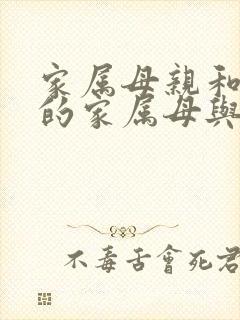 家属母親和
的家属母與
不毒舌會死君